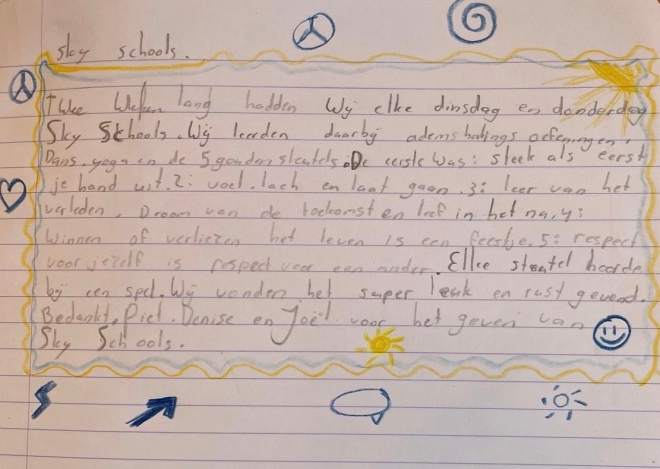 Sky schools.
Twee weken lang hadden wij elke dinsdag en donderdag
Sky Schools. Wij leerden daarbij ademshalings oefeningen,
Dans, yoga en de 5 gouden sleutels. De eerste was: steek als eerst
je hand uit. 2: voel, lach en laat gaan. 3: leer van het
verleden, Droom van de toekomst en leef in het nu, 4:
Winnen of verliezen het leven is een feestje. 5: respect
voor jezelf is respect voor een ander. Elke sleutel hoorde
bij een spel. Wij vonden het super leuk en rust gevend.
Bedankt, Piet, Denise en Joël voor het geven van
Sky Schools.